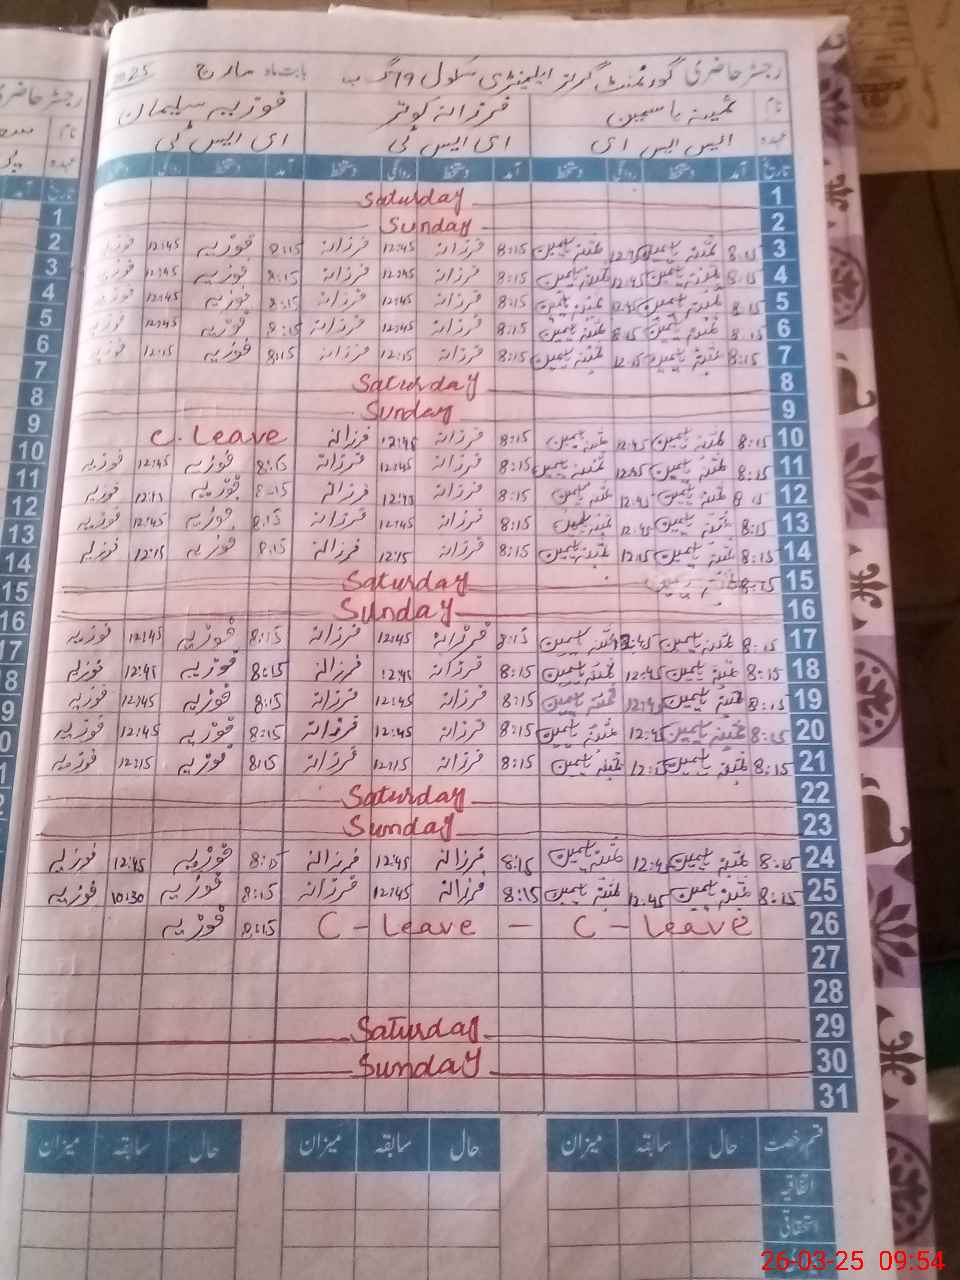 رجسٹر حاضری گورنمنٹ گرلز ایلیمنٹری سکول 19 گ ب بابت ماہ مارچ 2025
نام ثمینہ یاسمین فرزانہ کوثر فوزیہ سلیمان
عہدہ ایس ایس ای ای ایس ٹی ای ایس ٹی
تاریخ آمد دستخط روانگی دستخط آمد دستخط روانگی دستخط آمد دستخط روانگی دستخط
1 Saturday
2 Sunday
3 8:15 ثمینہ یاسمین 12:45 ثمینہ یاسمین 8:15 فرزانہ 12:45 فرزانہ 8:15 فوزیہ 12:45 فوزیہ
4 8:15 ثمینہ یاسمین 12:45 ثمینہ یاسمین 8:15 فرزانہ 12:45 فرزانہ 8:15 فوزیہ 12:45 فوزیہ
5 8:15 ثمینہ یاسمین 12:45 ثمینہ یاسمین 8:15 فرزانہ 12:45 فرزانہ 8:15 فوزیہ 12:45 فوزیہ
6 8:15 ثمینہ یاسمین 8:15 ثمینہ یاسمین 8:15 فرزانہ 12:45 فرزانہ 8:15 فوزیہ 12:45 فوزیہ
7 8:15 ثمینہ یاسمین 12:15 ثمینہ یاسمین 8:15 فرزانہ 12:15 فرزانہ 8:15 فوزیہ 12:15 فوزیہ
8 Saturday
9 Sunday
10 8:15 ثمینہ یاسمین 12:45 ثمینہ یاسمین 8:15 فرزانہ 12:45 فرزانہ C. Leave
11 8:15 ثمینہ یاسمین 12:45 ثمینہ یاسمین 8:15 فرزانہ 12:45 فرزانہ 8:15 فوزیہ 12:45 فوزیہ
12 8:15 ثمینہ یاسمین 12:45 ثمینہ یاسمین 8:15 فرزانہ 12:45 فرزانہ 8-15 فوزیہ فوزیہ
13 8:15 ثمینہ یاسمین 12:45 ثمینہ یاسمین 8:15 فرزانہ 12:45 فرزانہ 8:15 فوزیہ 12:45 فوزیہ
14 8:15 ثمینہ یاسمین 12:15 ثمینہ یاسمین 8:15 فرزانہ 12:15 فرزانہ 8:15 فوزیہ 12:15 فوزیہ
15 8:15 Saturday
16 Sunday
17 8:15 ثمینہ یاسمین 12:45 ثمینہ یاسمین 8:15 فرزانہ 12:45 فرزانہ 8:15 فوزیہ 12:45 فوزیہ
18 8:15 ثمینہ یاسمین 12:45 ثمینہ یاسمین 8:15 فرزانہ 12:45 فرزانہ 8:15 فوزیہ 12:45 فوزیہ
19 8:15 ثمینہ یاسمین 12:45 ثمینہ یاسمین 8:15 فرزانہ 12:45 فرزانہ 8:15 فوزیہ 12:45 فوزیہ
20 8:15 ثمینہ یاسمین 12:45 ثمینہ یاسمین 8:15 فرزانہ 12:45 فرزانہ 8:15 فوزیہ 12:45 فوزیہ
21 8:15 ثمینہ یاسمین 12:15 ثمینہ یاسمین 8:15 فرزانہ 12:15 فرزانہ 8:15 فوزیہ 12:15 فوزیہ
22 Saturday
23 Sunday
24 8:15 ثمینہ یاسمین 12:45 ثمینہ یاسمین 8:15 فرزانہ 12:45 فرزانہ 8:15 فوزیہ 12:45 فوزیہ
25 8:15 ثمینہ یاسمین 12:45 ثمینہ یاسمین 8:15 فرزانہ 12:45 فرزانہ 8:15 فوزیہ 10:30 فوزیہ
26 C - Leave - C - Leave 8:15 فوزیہ
27
28
29 Saturday
30 Sunday
31
قسم رخصت حال سابقہ میزان حال سابقہ میزان حال سابقہ میزان
اتفاقیہ
استحقاقی
26-03-25 09:54